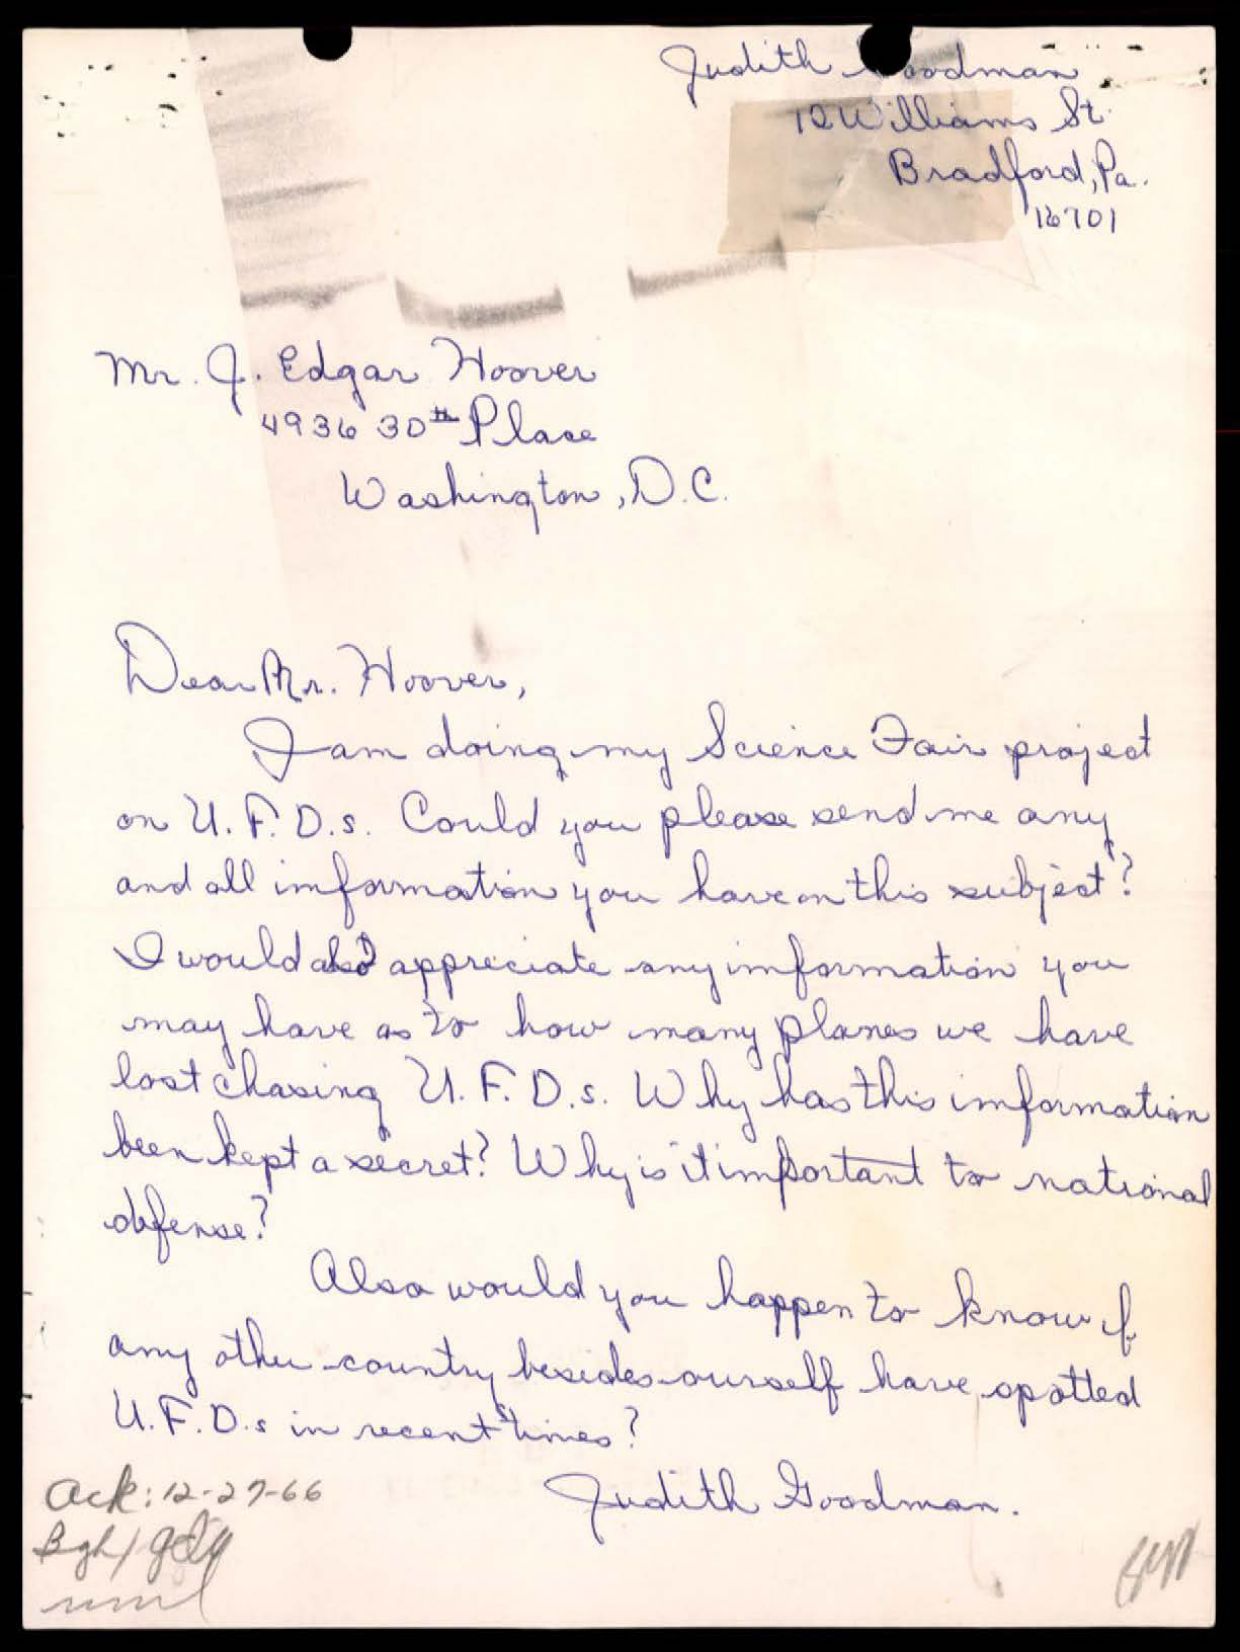 Judith Goodman
12 Williams St.
Bradford, Pa.
16701
Mr. J. Edgar Hoover
4936 30th Place
Washington, D.C.
Dear Mr. Hoover,
I am doing my Science Fair project
on U.F.O.s. Could you please send me any
and all information you have on this subject?
I would also appreciate any information you
may have as to how many planes we have
lost chasing U.F.O.s. Why has this information
been kept a secret? Why is it important to national
defense?
Also would you happen to know if
any other country besides ourself have spotted
U.F.O.s in recent times?
Judith Goodman.
Ack: 12-27-66